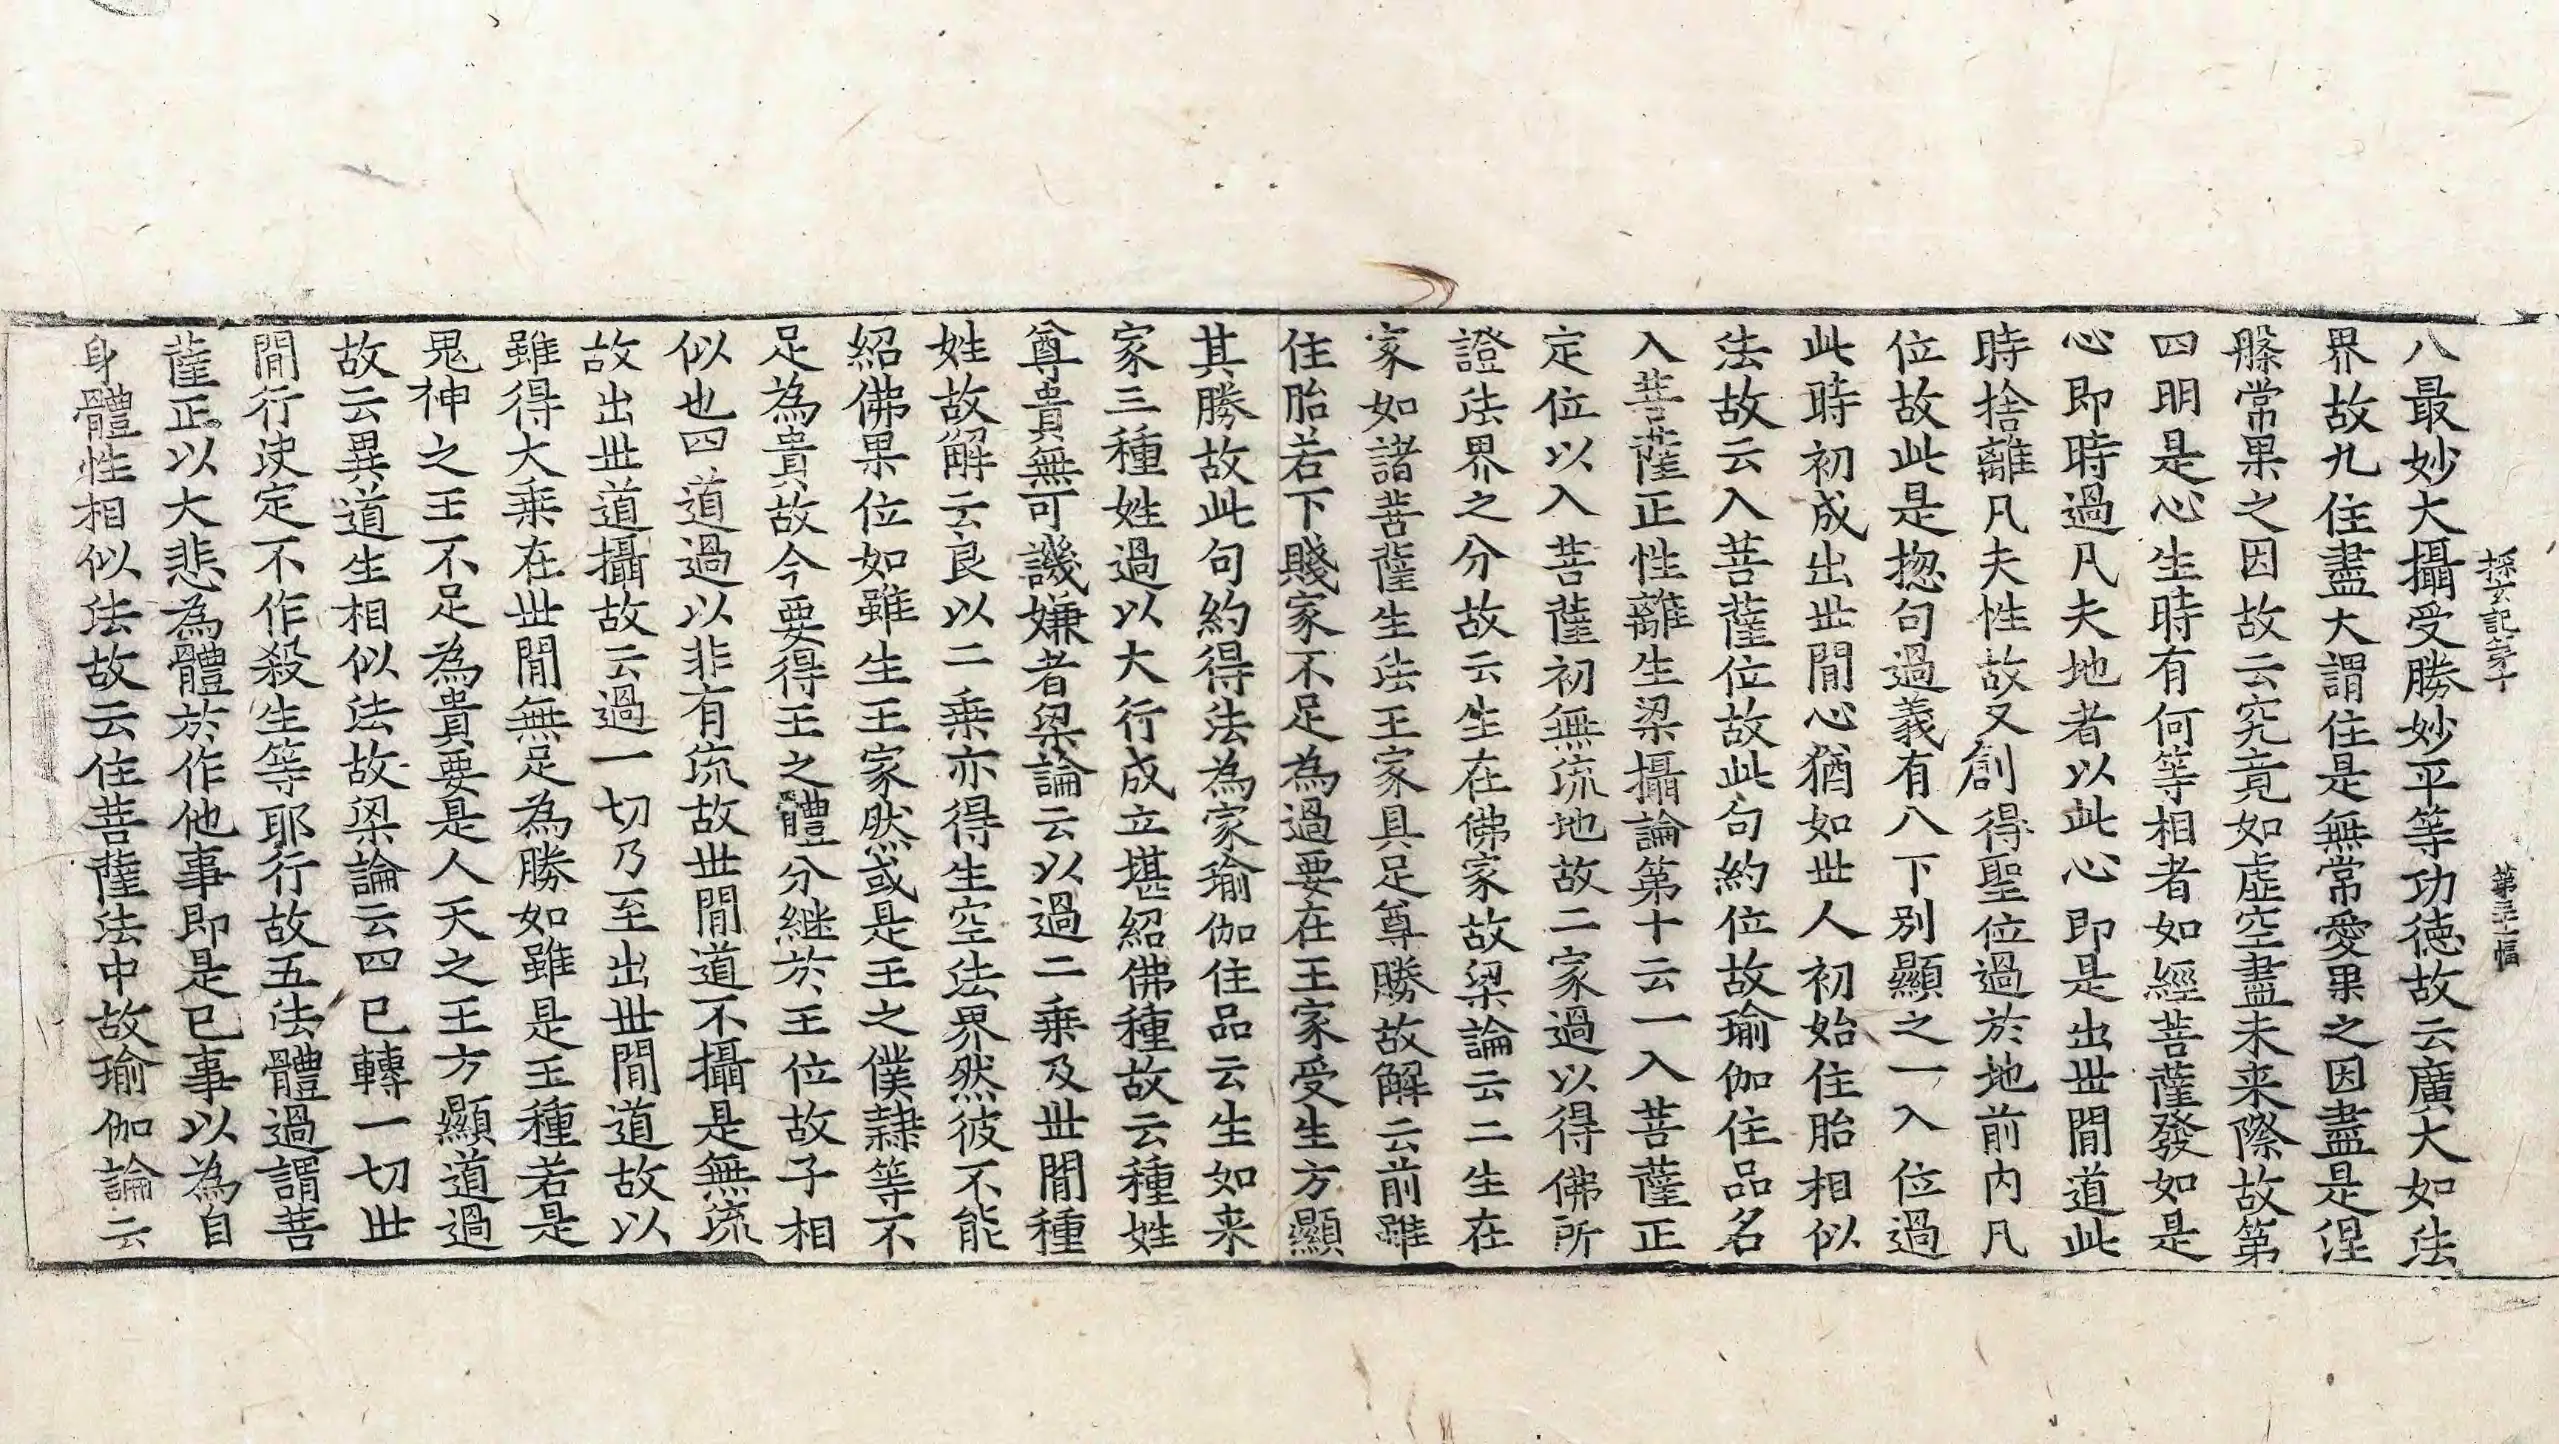 探玄記第十
第三十幅
八最妙大攝受勝妙平等功德故云廣大如法
界故九住盡大謂住是無常愛果之因盡是涅
槃常果之因故云究竟如虛空盡未来際故第
四明是心生時有何等相者如經菩薩發如是
心即時過凡夫地者以此心即是出世間道此
時捨離凡夫性故又創得聖位過於地前内凡
位故此是揔句過義有八下別顯之一入位過
此時初成出世間心猶如世人初始住胎相似
法故云入菩薩位故此句約位故瑜伽住品名
入菩薩正性離生梁攝論第十云一入菩薩正
定位以入菩薩初無流地故二家過以得佛所
證法界之分故云生在佛家故梁論云二生在
家如諸菩薩生法王家具足尊勝故解云前雖
住胎若下賤家不足為過要在王家受生方顯
其勝故此句約得法為家瑜伽住品云生如来
家三種姓過以大行成立堪紹佛種故云種姓
尊貴無可譏嫌者梁論云以過二乘及世間種
姓故解云良以二乘亦得生空法界然彼不能
紹佛果位如雖生王家然或是王之僕隸等不
足為貴故今要得王之體分継於王位故子相
似也四道過以非有流故世間道不攝是無流
故出世道攝故云過一切乃至出世間道故以
雖得大乘在世間無足為勝如雖是王種若是
鬼神之王不足為貴要是人天之王方顯道過
故云異道生相似法故梁論云四已轉一切世
間行决定不作殺生等耶行故五法體過謂菩
薩正以大悲為體於作他事即是已事以為自
身體性相似法故云住菩薩法中故瑜伽論云